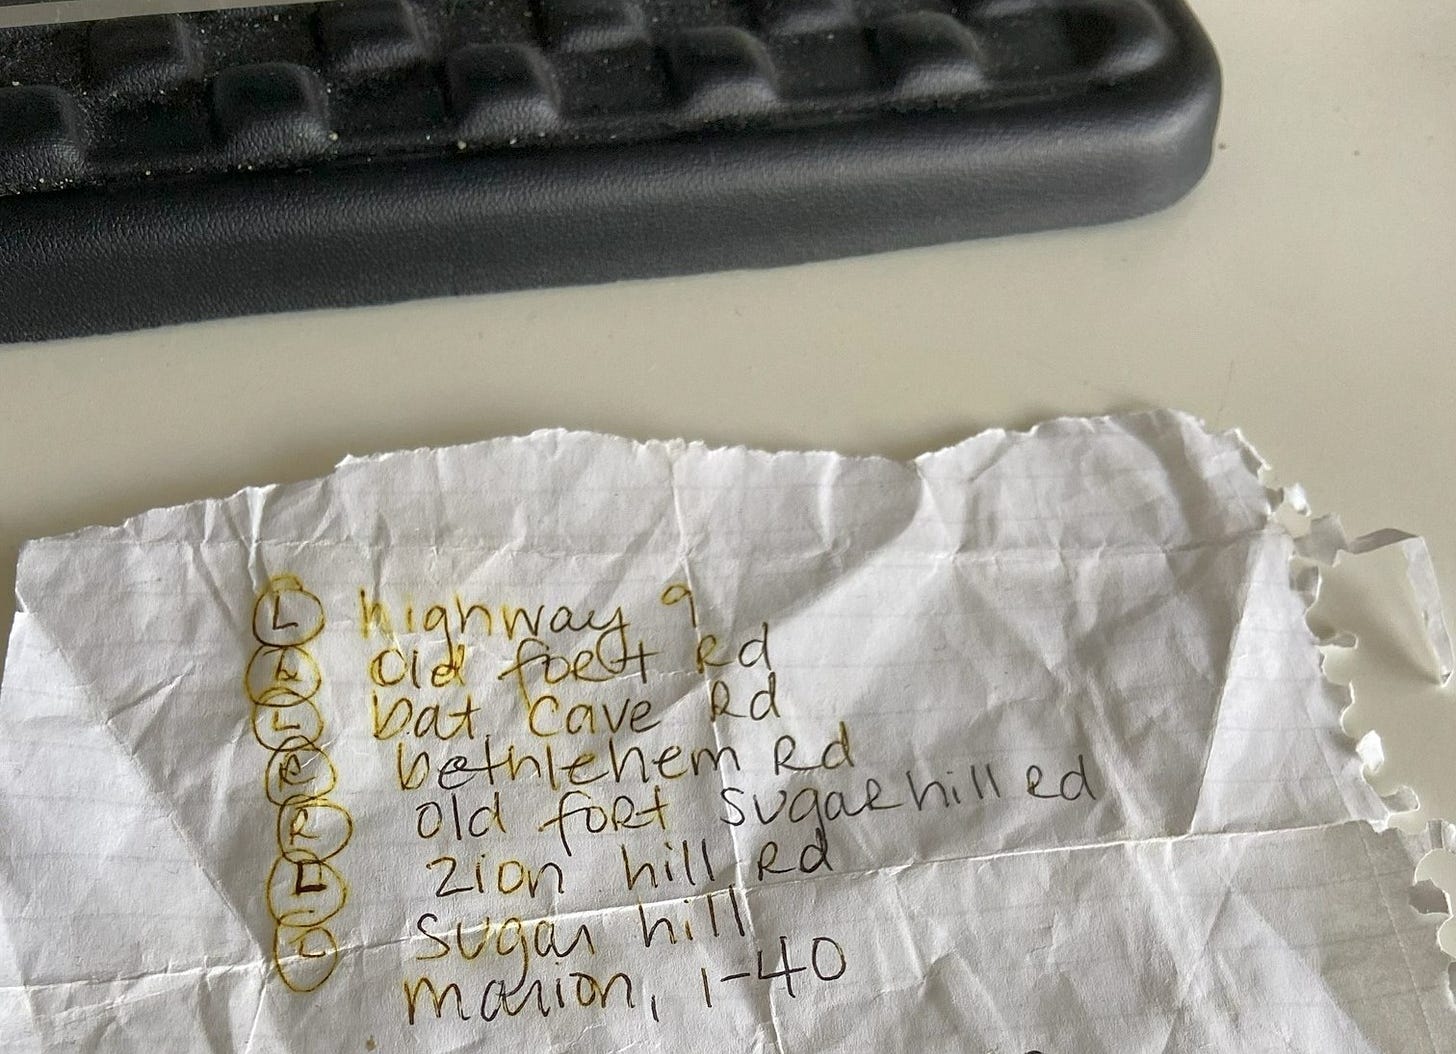 L highway 9
old fort Rd
L bat cave Rd
R bethlehem Rd
R old fort sugar hill Rd
L zion hill Rd
L sugar hill
marion, I-40